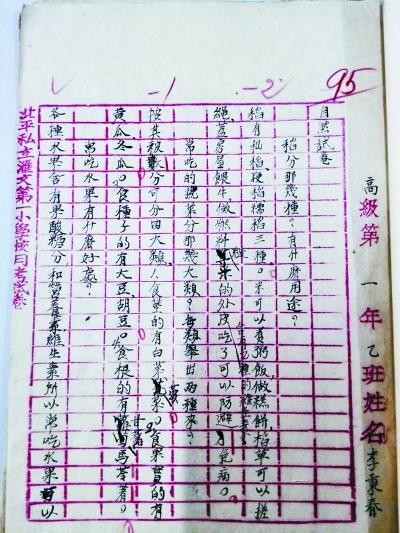 95
-2
-1
高級第一年乙班姓名李東春
自然試卷
稻分那幾種？有什麼用途。
稻有秈稻、粳稻、糯稻三種。米可以煮粥飯、做糕餅、稻草可以搓
繩、蓋房屋、餵牛、做燃料、米的外皮吃了可以防避病。
常吃的蔬菜分那幾大類？每類舉出兩種來？
按其被食分可分四大類、食葉的有白菜菠菜。食果實的有
黃瓜、冬瓜。食種子的有大豆、胡豆。食根的有甘藷馬苓薯。
常吃水果有什麼好處？
各種水果含有果酸糖分和營養素維生素所以常吃水果可以
北平私立滙文第一小學校月考試卷